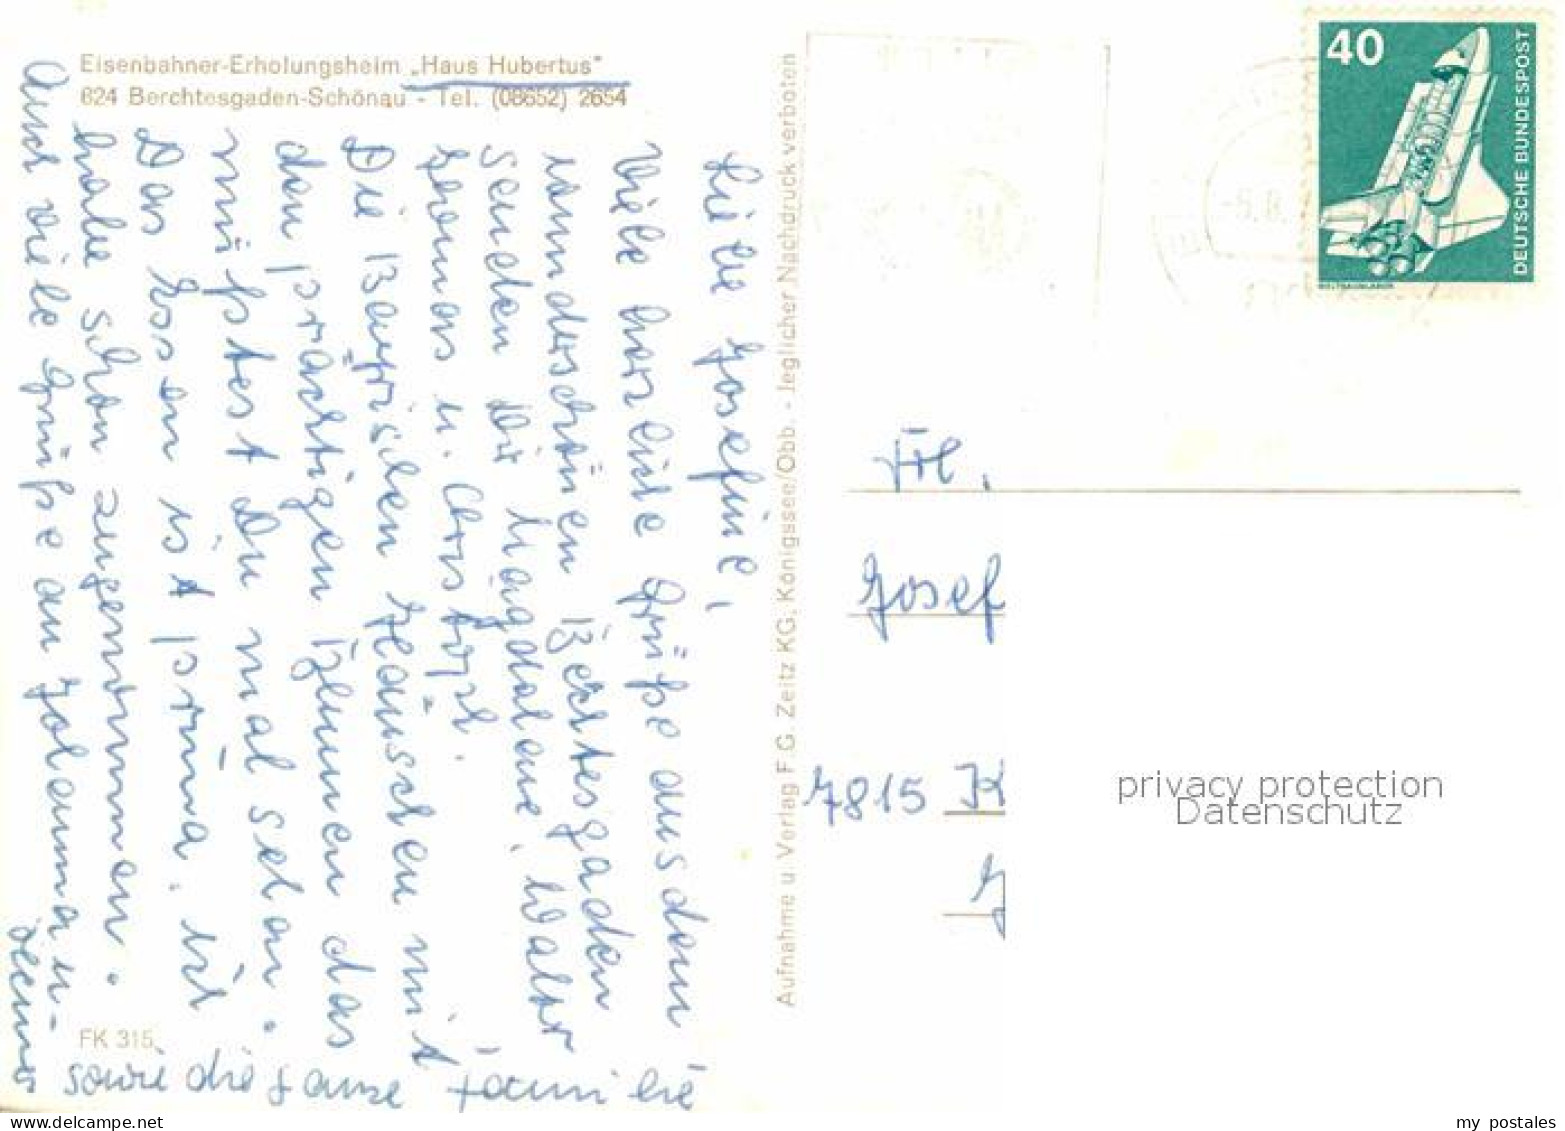 Eisenbahner-Erholungsheim „Haus Hubertus"
824 Berchtesgaden-Schönau - Tel. (08652) 2654
Liebe Josefine,
Viele herzliche Grüße aus dem
wunderschönen Berchtesgaden
senden Dir Magdalene, Walter
Thomas u. Christoph.
Die Bayrischen Häuschen mit
den prächtigen Blumen das
müßtest Du mal sehen.
Das Essen ist prima. Ich
habe schon zugenommen.
Auch viele Grüße an Johanna u.
sowie die ganze Familie
FK 315
Aufnahme u. Verlag F.G. Zeitz KG, Königssee/Obb. - Jeglicher Nachdruck verboten
40
DEUTSCHE BUNDESPOST
WELTRAUMLABOR
Frl.
Josef
7815 K
privacy protection
Datenschutz
my postales